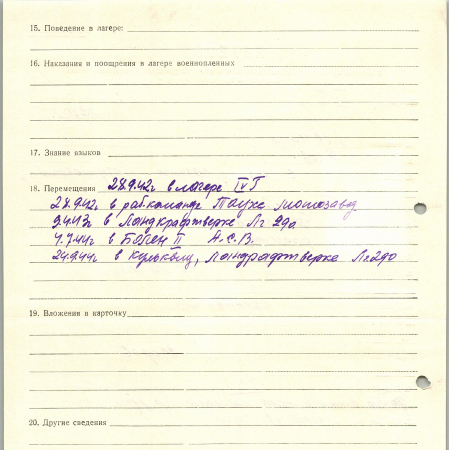 15. Поведение в лагере:
16. Наказания и поощрения в лагере военнопленных
17. Знание языков
18. Перемещения 28.9.42г в лагере IV Г
28.9.42г в рабкоманде Таухе
9.4.43г в Ландкрафтверке Лг 29а
4.7.44г в Бёлен II A.С.В.
24.9.44г в Кульквиц, Ландкрафтверке
19. Вложения в карточку
20. Другие сведения